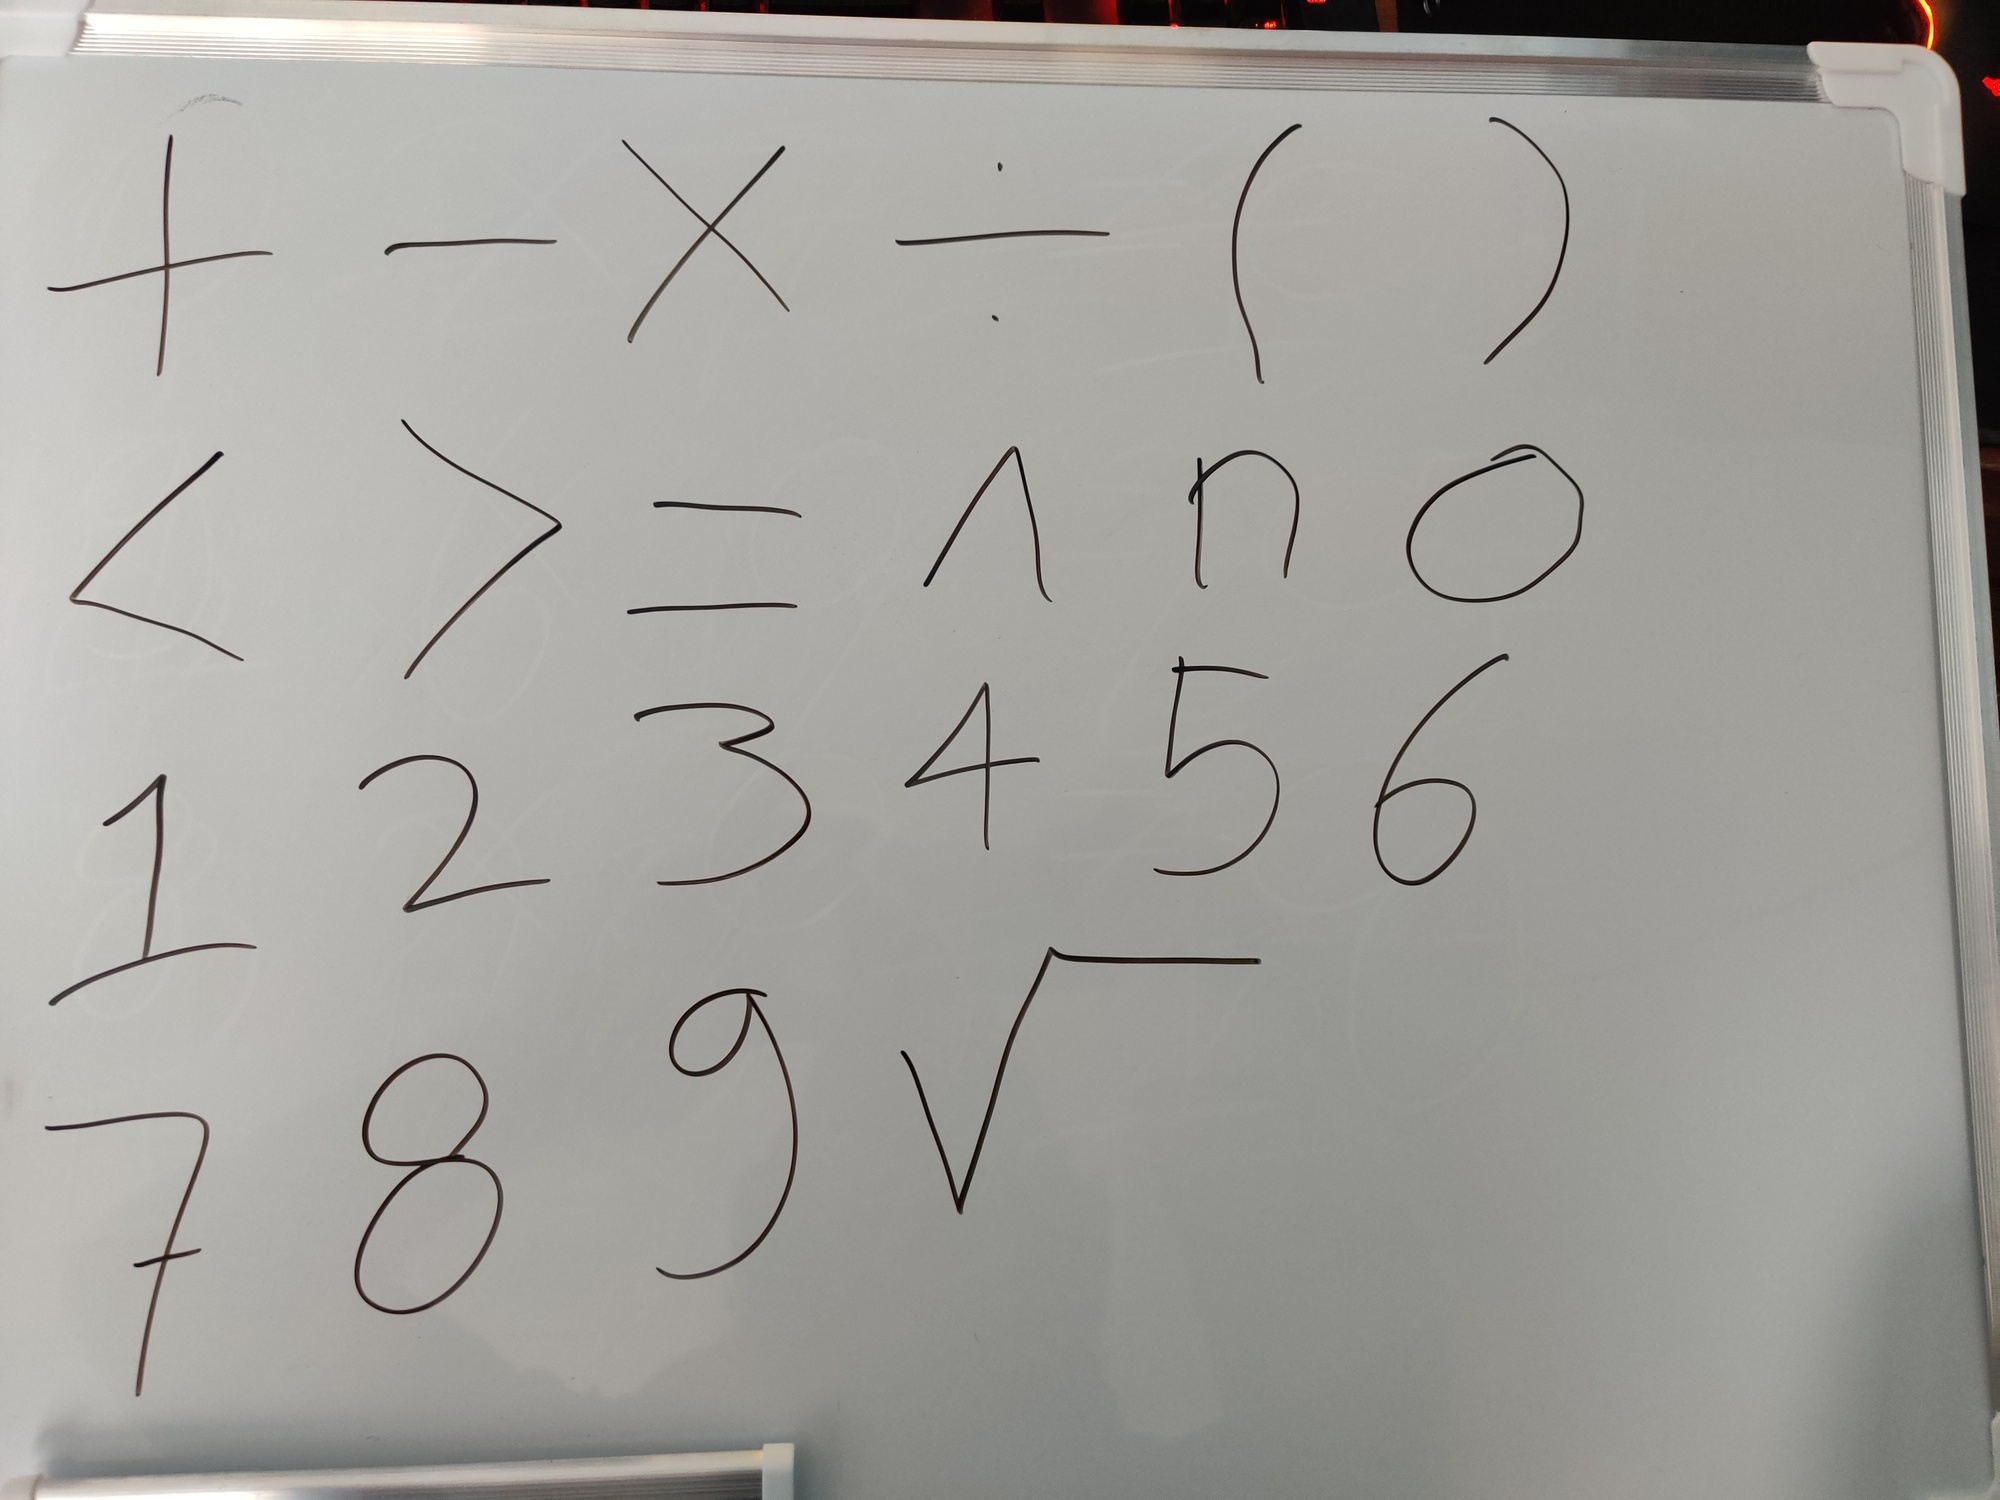 + - × ÷ ( )
< > = ^ n 0
1 2 3 4 5 6
7 8 9 √